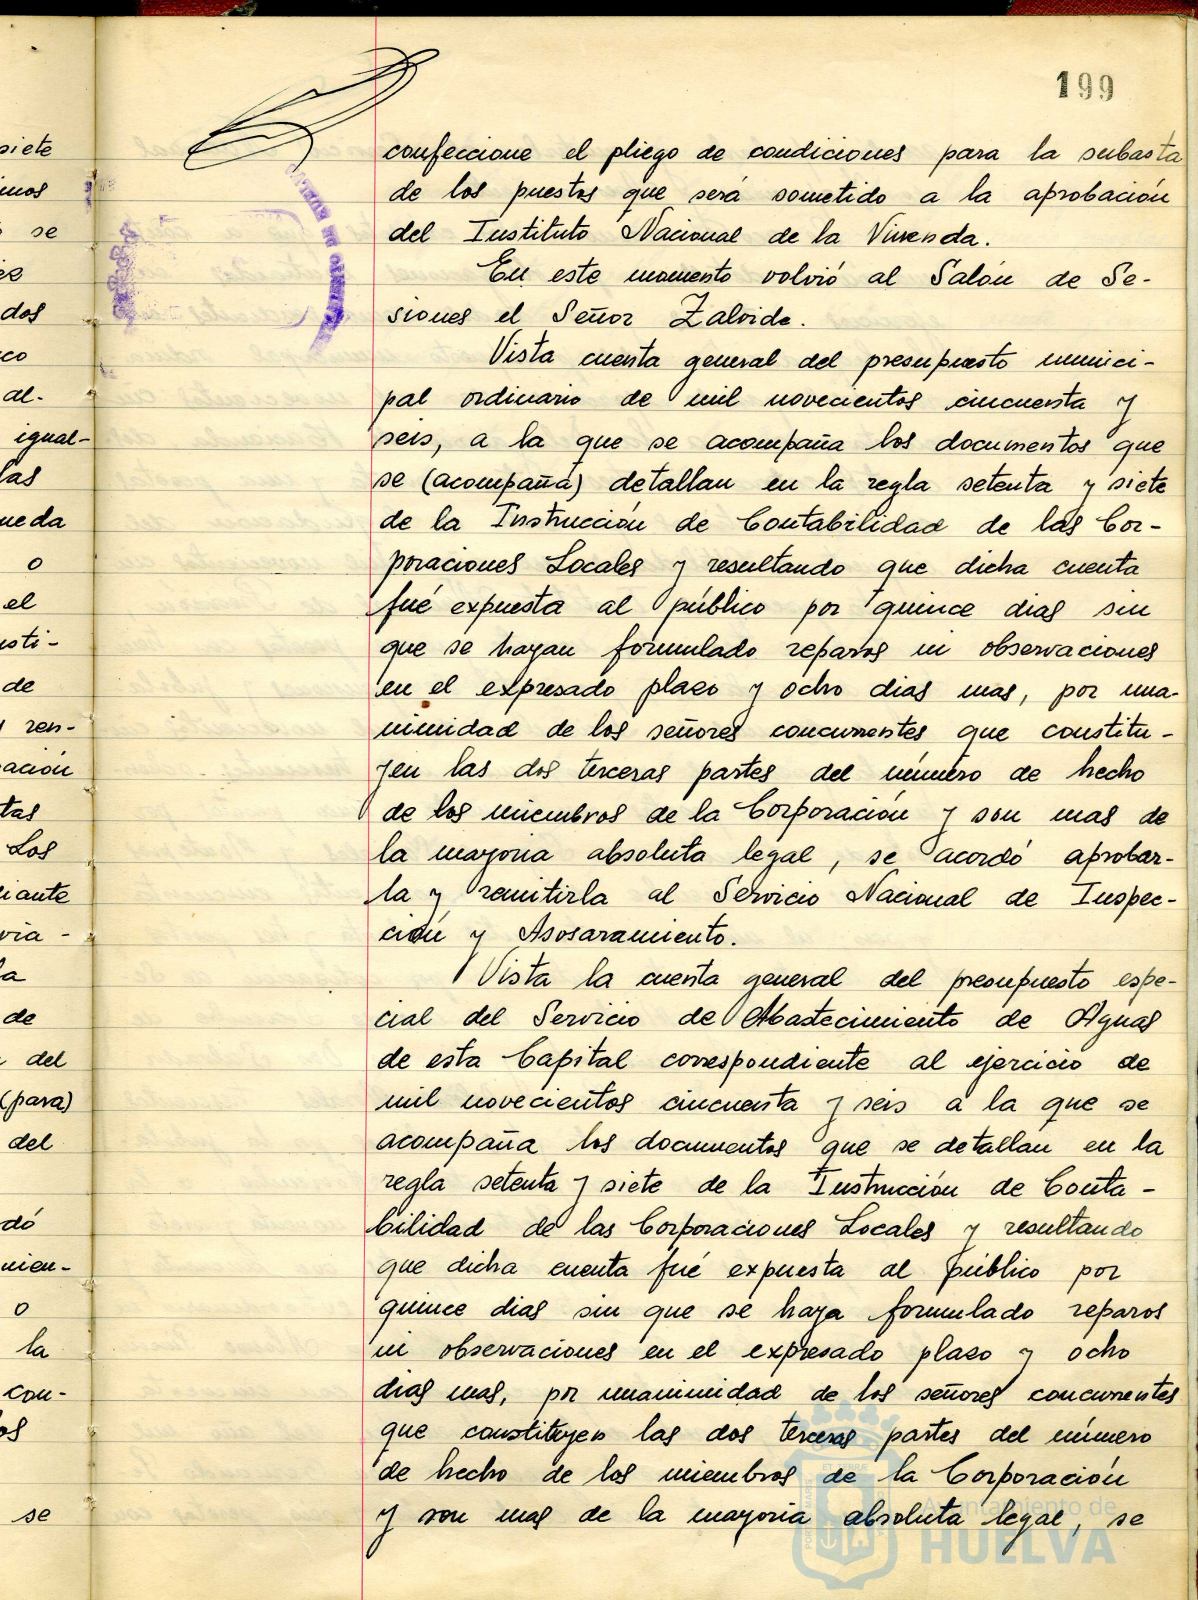 199
confeccione el pliego de condiciones para la subasta
de los puestos que será sometido a la aprobación
del Instituto Nacional de la Vivienda.
En este momento volvió al Salón de Se-
siones el Señor Zalvide.
Vista cuenta general del presupuesto munici-
pal ordinario de mil novecientos cincuenta y
seis, a la que se acompaña los documentos que
se (acompaña) detallan en la regla setenta y siete
de la Instrucción de Contabilidad de las Cor-
poraciones Locales y resultando que dicha cuenta
fué expuesta al público por quince dias sin
que se hayan formulado reparos ni observaciones
en el expresado plazo y ocho dias mas, por una-
nimidad de los señores concurrentes que constitu-
yen las dos terceras partes del número de hecho
de los miembros de la Corporación y son mas de
la mayoria absoluta legal, se acordó aprobar-
la y remitirla al Servicio Nacional de Inspec-
ción y Asosaramiento.
Vista la cuenta general del presupuesto espe-
cial del Servicio de Abastecimiento de Aguas
de esta Capital correspondiente al ejercicio de
mil novecientos cincuenta y seis a la que se
acompaña los documentos que se detallan en la
regla setenta y siete de la Instrucción de Conta-
bilidad de las Corporaciones Locales y resultando
que dicha cuenta fué expuesta al público por
quince dias sin que se haya formulado reparos
ni observaciones en el expresado plazo y ocho
dias mas, por unanimidad de los señores concurrentes
que constituyen las dos terceras partes del número
de hecho de los miembros de la Corporación
y son mas de la mayoria absoluta legal, se
Ayuntamiento de
HUELVA
siete
se
dos
al-
igual-
las
queda
o
el
de
ren-
Los
de
del
(para)
del
o
la
con-
se